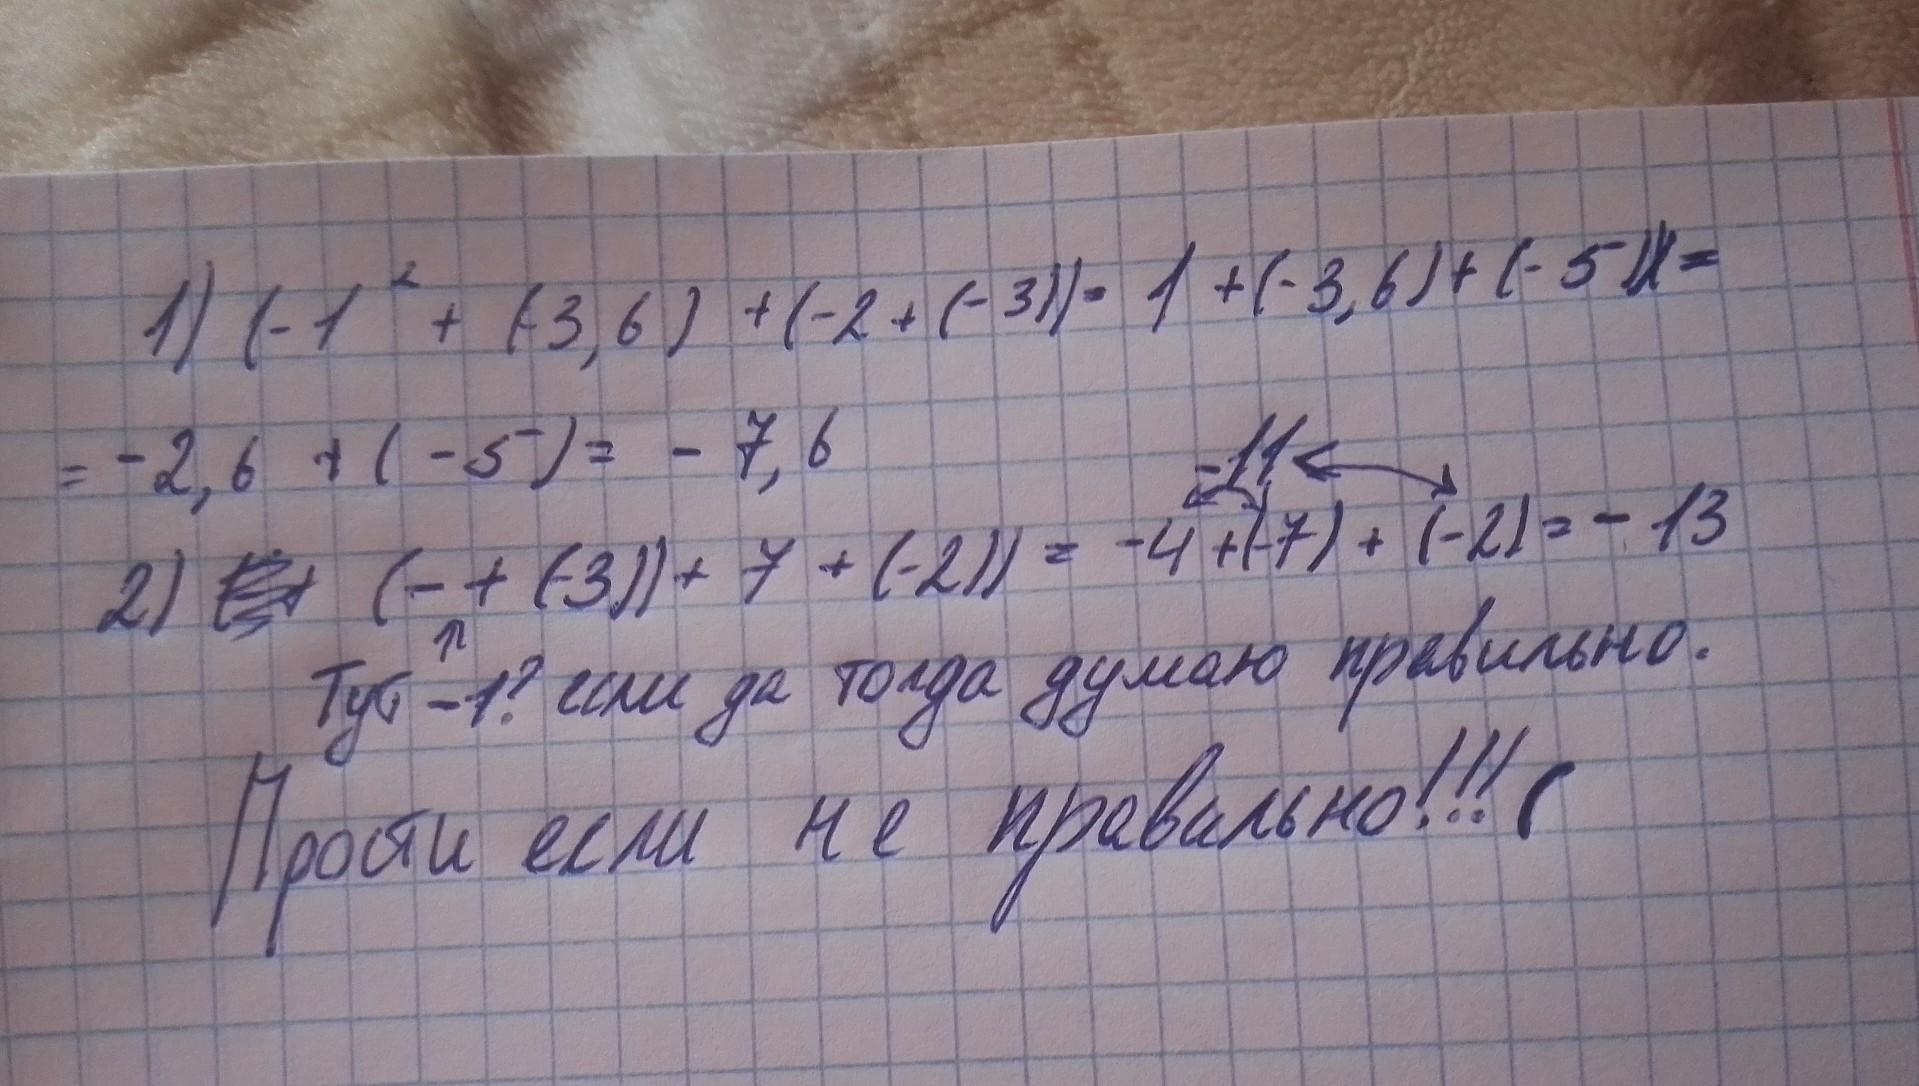 1) (-1² + (-3,6) + (-2 + (-3)) = 1 + (-3,6) + (-5)) =
= -2,6 + (-5) = -7,6
-11
2) (- + (-3)) + 7 + (-2)) = -4 + (-7) + (-2) = -13
Тут -1? если да тогда думаю правильно.
Прости если не правильно!!! (